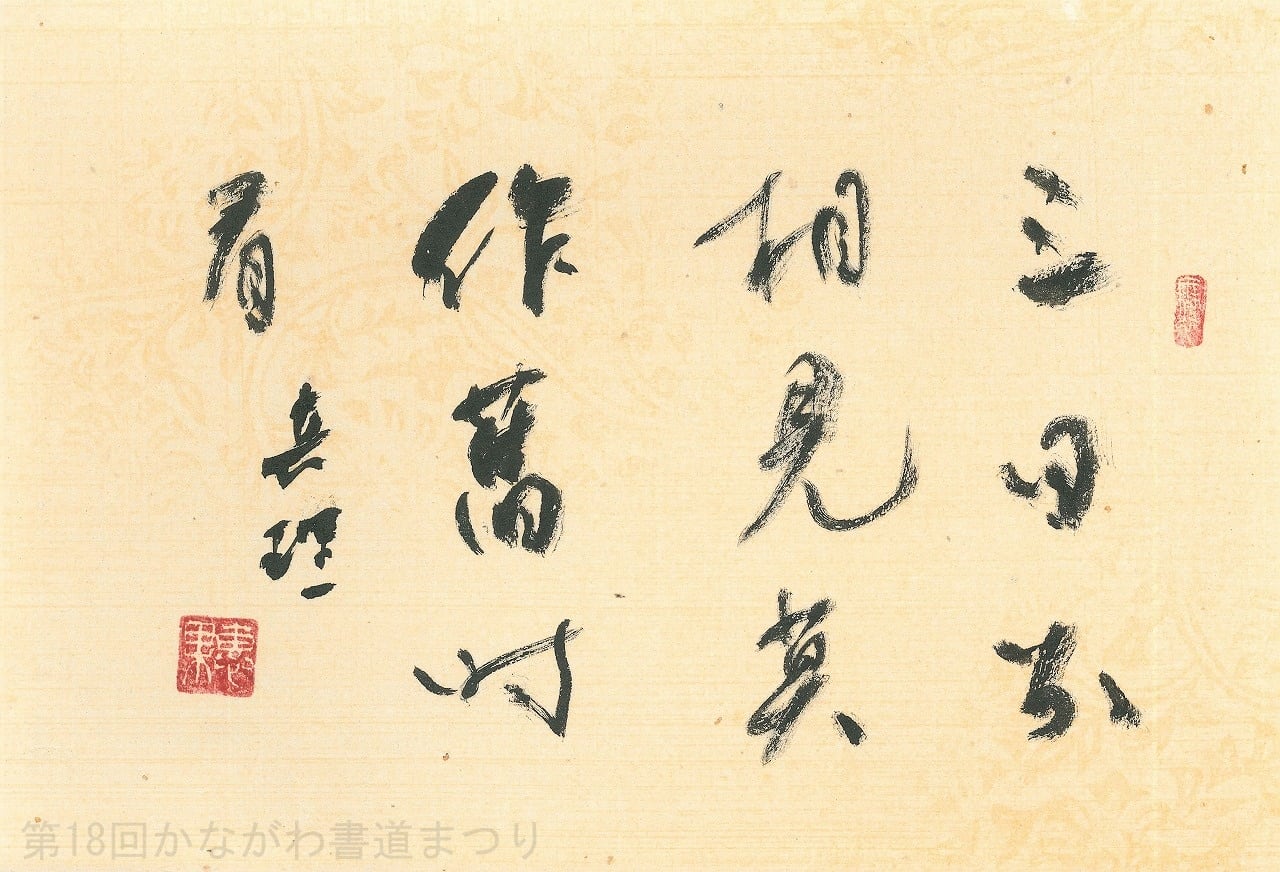 三日不
相見莫
作舊時
看
第18回かながわ書道まつり